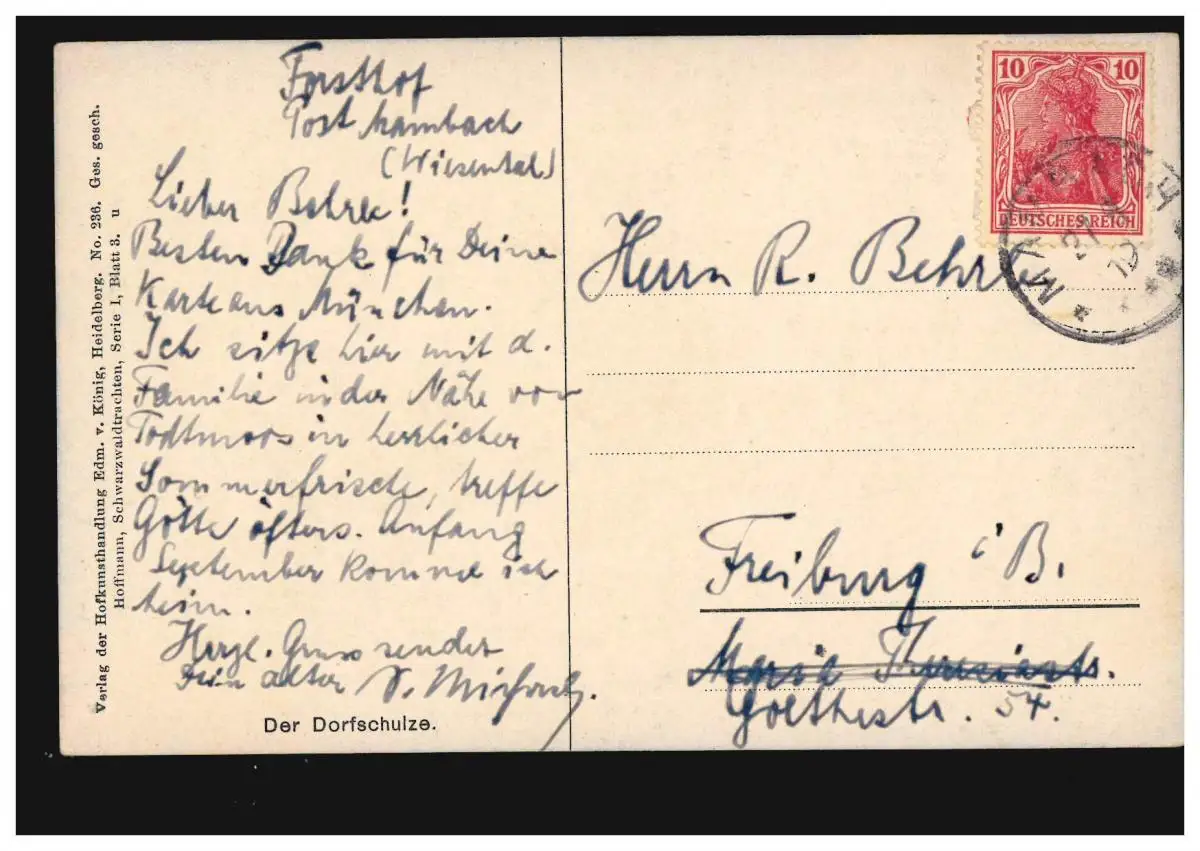 Verlag der Hofkunsthandlung Edm. v. König, Heidelberg. No. 236. Ges. gesch.
Hoffmann, Schwarzwaldtrachten, Serie 1, Blatt 3. u
Forsthof
Post Mambach
(Wiesental)
Lieber Behrle!
Besten Dank für Deine
Karte aus München.
Ich sitze hier mit d.
Familie in der Nähe von
Todtmoos in herrlicher
Sommerfrische, treffe
Götte öfters. Anfang
September komme ich
heim.
Herzl. Gruss sendet
Dein alter
Der Dorfschulze.
10 10
DEUTSCHES REICH
Herrn R. Behrle
Freiburg i B.
Maria Theresiastr.
Goethestr. 54.